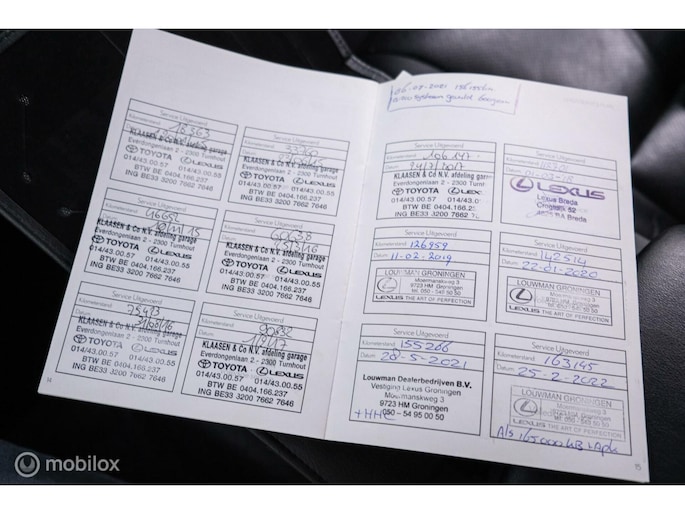 Service Uitgevoerd
Kilometerstand: 18363
Datum:
KLAASEN & Co N.V. afdeling garage
Everdongenlaan 2 - 2300 Turnhout
TOYOTA LEXUS
014/43.00.57 014/43.00.55
BTW BE 0404.166.237
ING BE33 3200 7662 7646
Service Uitgevoerd
Kilometerstand:
Datum:
KLAASEN & Co N.V. afdeling garage
Everdongenlaan 2 - 2300 Turnhout
TOYOTA LEXUS
014/43.00.57 014/43.00.55
BTW BE 0404.166.237
ING BE33 3200 7662 7646
Service Uitgevoerd
Kilometerstand: 46652
KLAASEN & Co N.V. afdeling garage
Everdongenlaan 2 - 2300 Turnhout
TOYOTA LEXUS
014/43.00.57 014/43.00.55
BTW BE 0404.166.237
ING BE33 3200 7662 7646
Service Uitgevoerd
Kilometerstand:
KLAASEN & Co N.V. afdeling garage
Everdongenlaan 2 - 2300 Turnhout
TOYOTA LEXUS
014/43.00.57 014/43.00.55
BTW BE 0404.166.237
ING BE33 3200 7662 7646
Service Uitgevoerd
Kilometerstand:
KLAASEN & Co N.V. afdeling garage
Everdongenlaan 2 - 2300 Turnhout
TOYOTA LEXUS
014/43.00.57 014/43.00.55
BTW BE 0404.166.237
ING BE33 3200 7662 7646
Service Uitgevoerd
Kilometerstand:
KLAASEN & Co N.V. afdeling garage
Everdongenlaan 2 - 2300 Turnhout
TOYOTA LEXUS
014/43.00.57 014/43.00.55
BTW BE 0404.166.237
ING BE33 3200 7662 7646
14
Service Uitgevoerd
Kilometerstand: 106147
24/7/2017
KLAASEN & Co N.V. afdeling garage
Everdongenlaan 2 - 2300 Turnhout
TOYOTA LEXUS
014/43.00.57 014/43.00.55
BTW BE 0404.166.237
ING BE33 3200 7662 7646
Service Uitgevoerd
Kilometerstand:
Datum: 01-03-18
LEXUS
Lexus Breda
Service Uitgevoerd
Kilometerstand: 126959
Datum: 11-02-2019
LOUWMAN GRONINGEN
Mürmanskweg 3
9723 HM Groningen
Tel. 050 - 549 50 50
LEXUS THE ART OF PERFECTION
Service Uitgevoerd
Kilometerstand: 142514
Datum: 22-01-2020
LOUWMAN GRONINGEN
LEXUS THE ART OF PERFECTION
Service Uitgevoerd
Kilometerstand: 155266
Datum: 20-5-2021
Louwman Dealerbedrijven B.V.
Vestiging Lexus Groningen
9723 HM Groningen
050 - 54 95 00 50
+HHC
Service Uitgevoerd
Kilometerstand: 163145
Datum: 25-2-2022
LOUWMAN GRONINGEN
LEXUS THE ART OF PERFECTION
15
mobilox